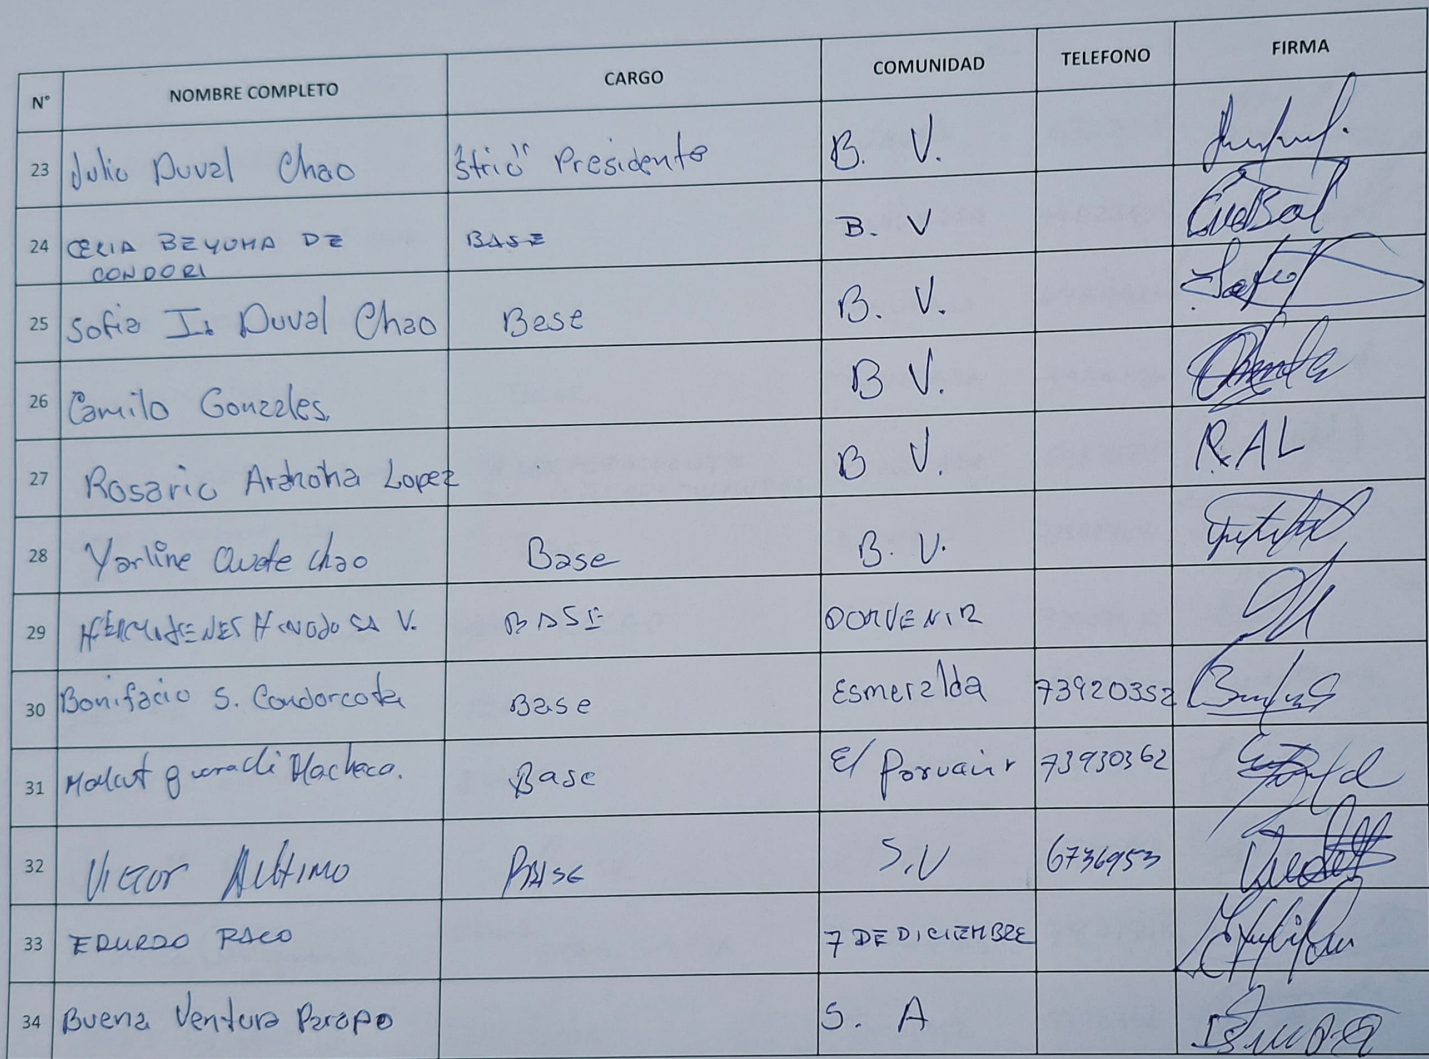 N° NOMBRE COMPLETO CARGO COMUNIDAD TELEFONO FIRMA
23 Julio Duval Chao "Strio" Presidente B. V.
24 CELIA BEYUMA DE BASE B. V
CONDORI
25 Sofia I. Duval Chao Base B. V.
26 Camilo Gonzales. B V.
27 Rosario Lopez B V RAL
28 Yarline Chao Base B. V.
29 V. BASE PORVENIR
30 Bonifacio S. Condorcota Base Esmeralda 73920352
31 Pacheco. Base El Porvenir 73930362
32 Victor BAse S.V 6736953
33 EDURDO PACO 7 DE DICIEMBRE
34 Buena Ventura Parapo S. A